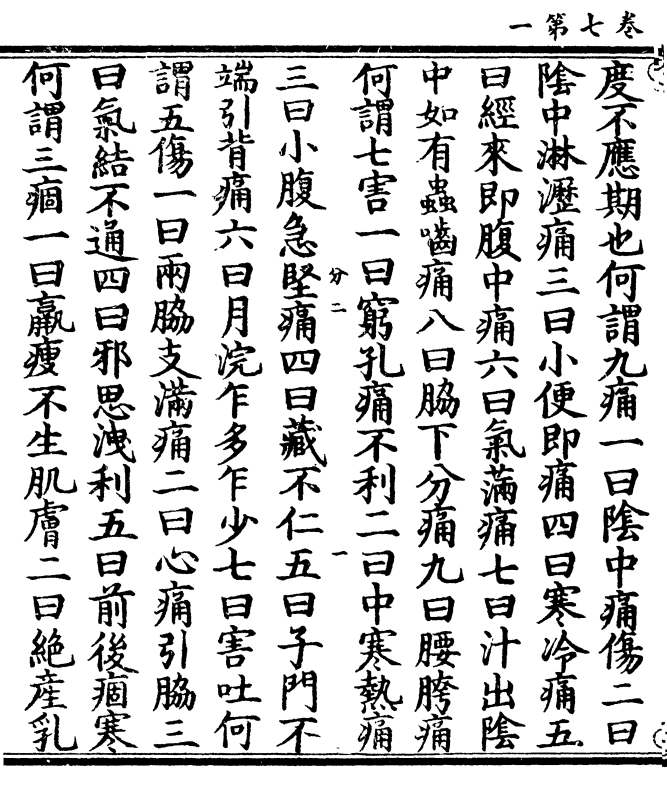 卷七第一
度不應期也何謂九痛一曰陰中痛傷二曰
陰中淋瀝痛三曰小便即痛四曰寒冷痛五
曰經來即腹中痛六曰氣滿痛七曰汁出陰
中如有蟲嚙痛八曰脇下分痛九曰腰胯痛
何謂七害一曰窮孔痛不利二曰中寒熱痛
分二 一
三曰小腹急堅痛四曰藏不仁五曰子門不
端引背痛六曰月浣乍多乍少七曰害吐何
謂五傷一曰兩脇支滿痛二曰心痛引脇三
曰氣結不通四曰邪思洩利五曰前後痼寒
何謂三痼一曰羸瘦不生肌膚二曰絶産乳